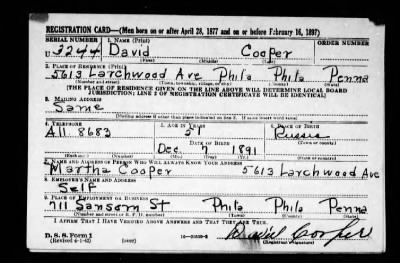 REGISTRATION CARD—(Men born on or after April 28, 1877 and on or before February 16, 1897)
SERIAL NUMBER 1. NAME (Print) ORDER NUMBER
U 3244 David Cooper
(First) (Middle) (Last)
2. PLACE OF RESIDENCE (Print)
5613 Larchwood Ave Phila Phila Penna
(Number and street) (Town, township, village, or city) (County) (State)
[THE PLACE OF RESIDENCE GIVEN ON THE LINE ABOVE WILL DETERMINE LOCAL BOARD
JURISDICTION; LINE 2 OF REGISTRATION CERTIFICATE WILL BE IDENTICAL]
3. MAILING ADDRESS
Same
[Mailing address if other than place indicated on line 2. If same insert word same]
4. TELEPHONE 5. AGE IN YEARS 6. PLACE OF BIRTH
All. 8683 51 Russia
DATE OF BIRTH (Town or county)
Dec 7 1891
(Exchange) (Number) (Mo.) (Day) (Yr.) (State or country)
7. NAME AND ADDRESS OF PERSON WHO WILL ALWAYS KNOW YOUR ADDRESS
Martha Cooper 5613 Larchwood Ave
8. EMPLOYER'S NAME AND ADDRESS
Self
9. PLACE OF EMPLOYMENT OR BUSINESS
711 Sansom St Phila Phila Penna
(Number and street or R. F. D. number) (Town) (County) (State)
I AFFIRM THAT I HAVE VERIFIED ABOVE ANSWERS AND THAT THEY ARE TRUE.
D. S. S. Form 1
(Revised 4-1-42) (over) David Cooper
(Registrant's signature)